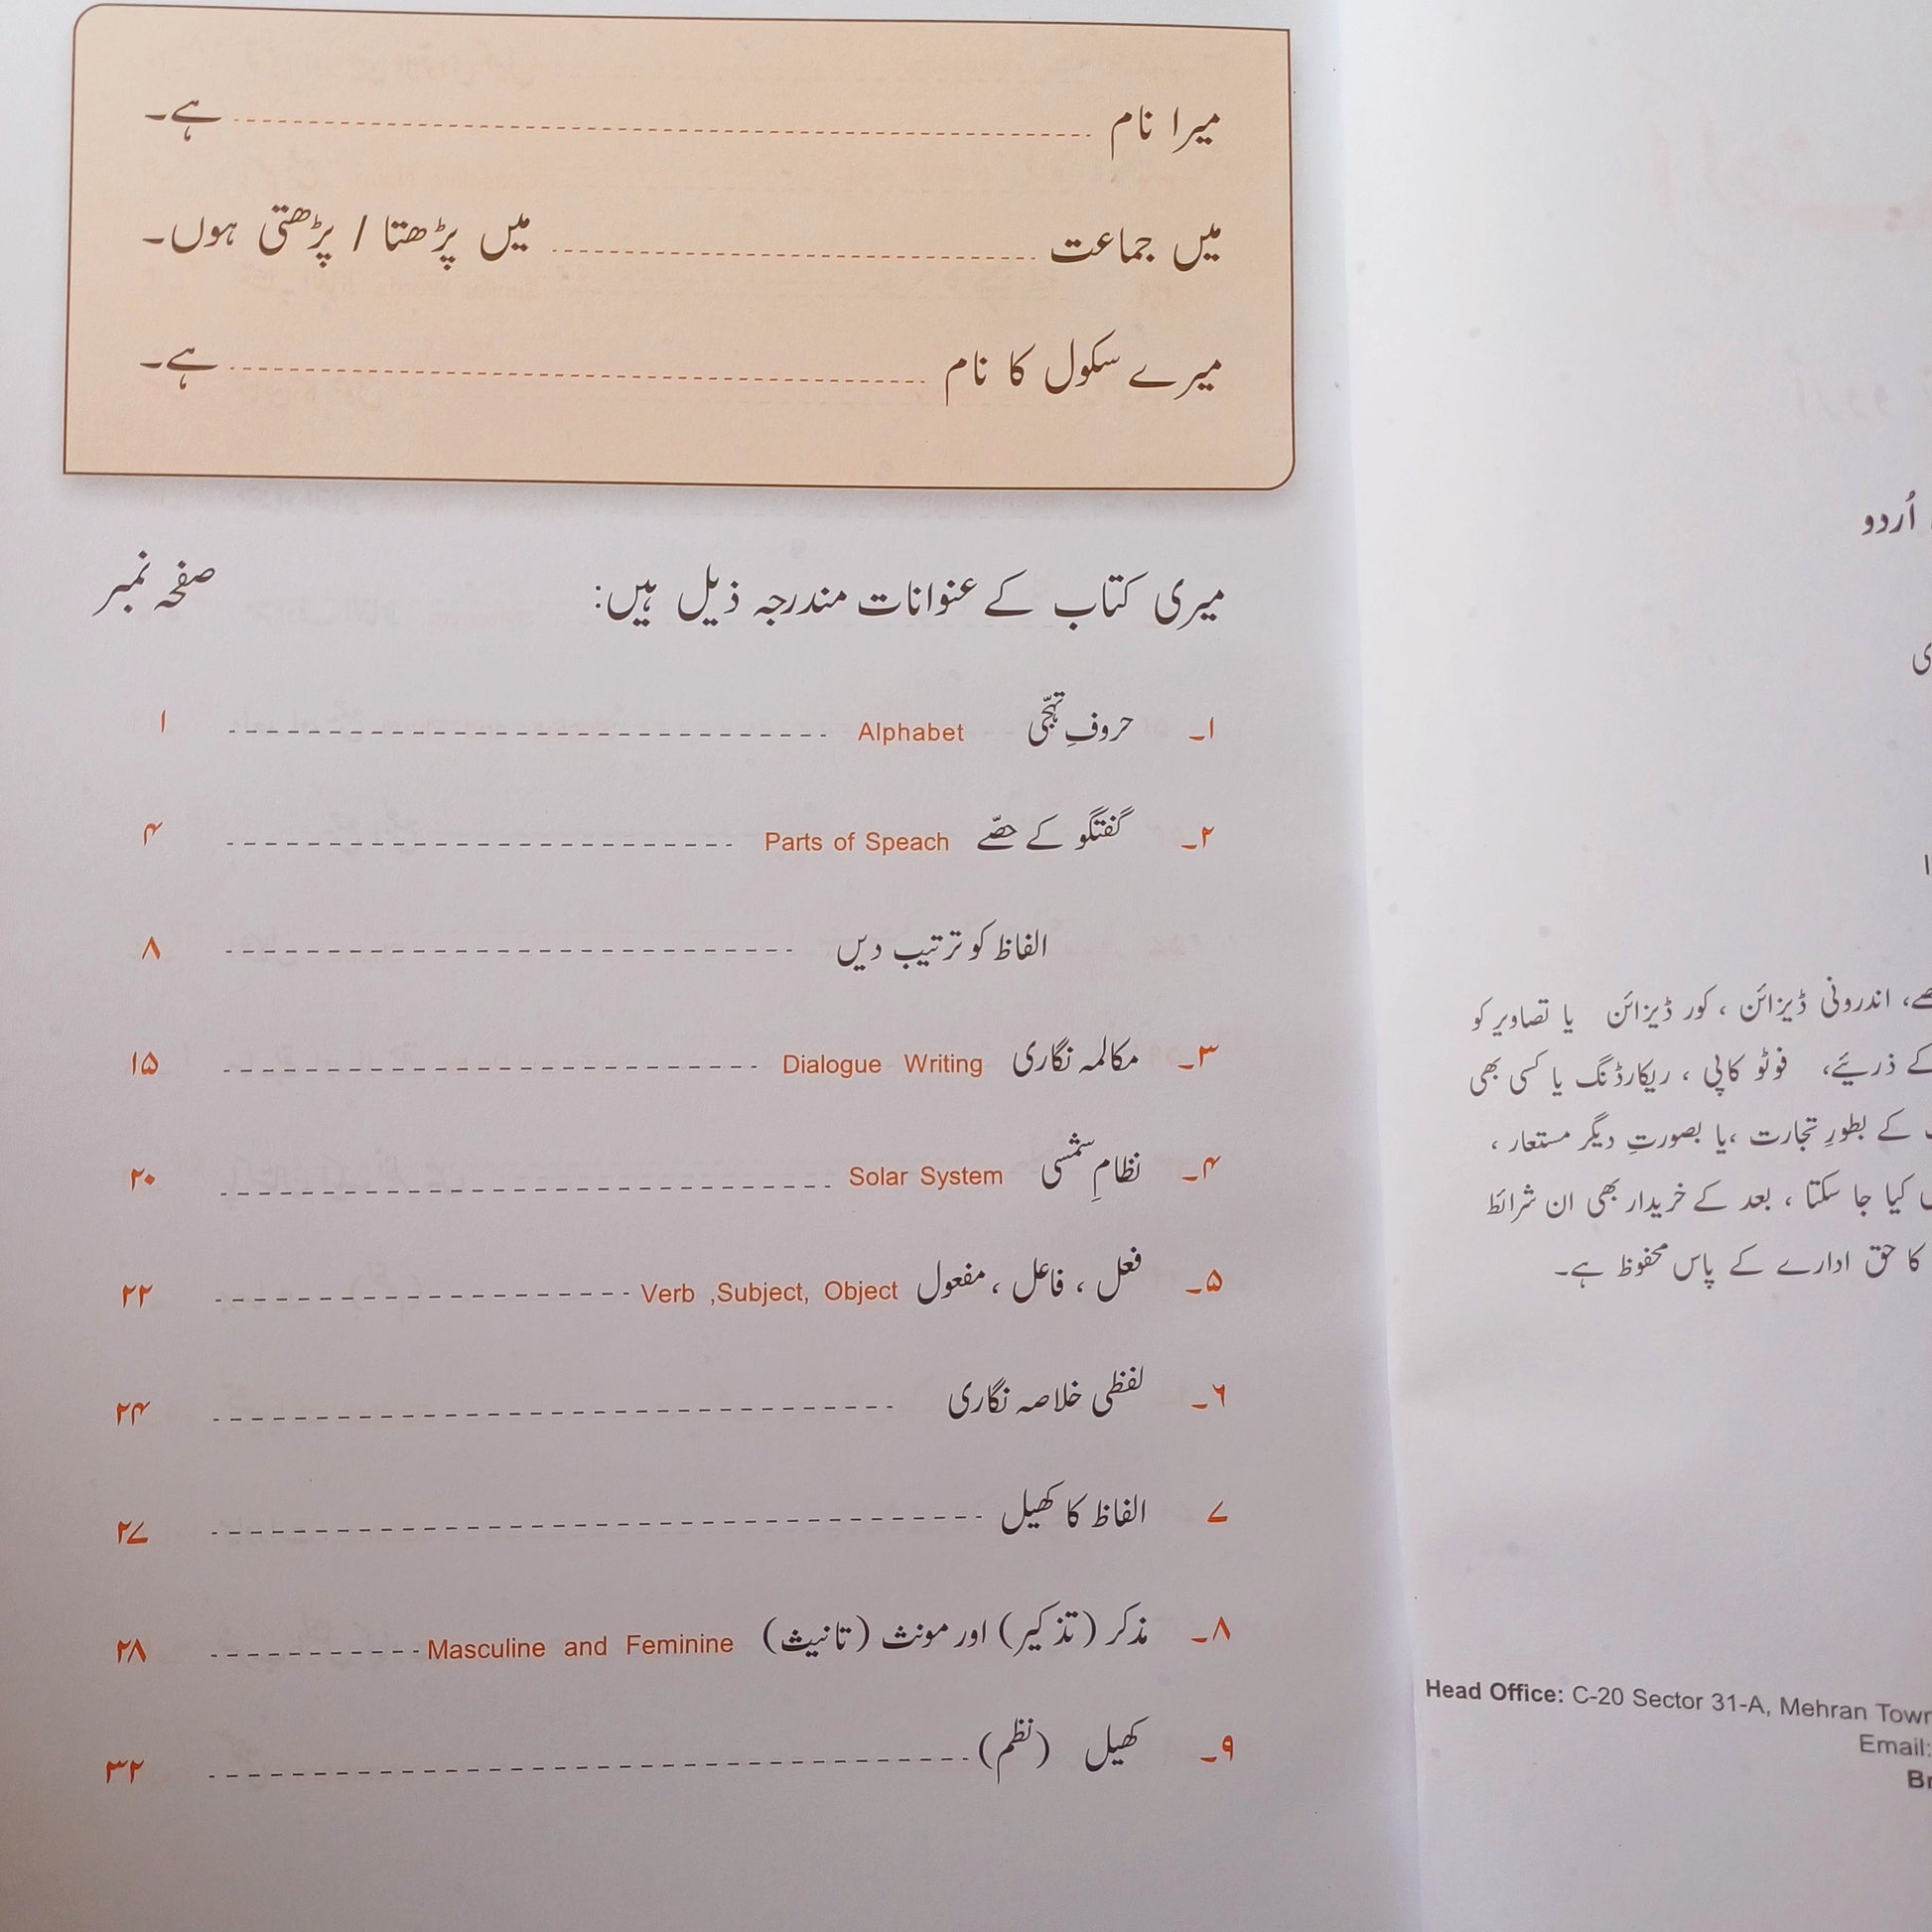 میرا نام ہے۔
میں جماعت میں پڑھتا / پڑھتی ہوں۔
میرے سکول کا نام ہے۔
میری کتاب کے عنوانات مندرجہ ذیل ہیں: صفحہ نمبر
۱۔ حروفِ تہجّی Alphabet ۱
۲۔ گفتگو کے حصّے Parts of Speach ۴
الفاظ کو ترتیب دیں ۸
۳۔ مکالمہ نگاری Dialogue Writing ۱۵
۴۔ نظامِ شمسی Solar System ۲۰
۵۔ فعل ، فاعل ، مفعول Verb ,Subject, Object ۲۲
۶۔ لفظی خلاصہ نگاری ۲۴
۷ الفاظ کا کھیل ۲۷
۸۔ مذکر (تذکیر) اور مونث (تانیث) Masculine and Feminine ۲۸
۹۔ کھیل (نظم) ۳۲
اُردو
اندرونی ڈیزائن ، کور ڈیزائن یا تصاویر کو
کے ذریئے، فوٹو کاپی ، ریکارڈنگ یا کسی بھی
کے بطورِ تجارت ،یا بصورتِ دیگر مستعار ،
کیا جا سکتا ، بعد کے خریدار بھی ان شرائط
کا حق ادارے کے پاس محفوظ ہے۔
Head Office: C-20 Sector 31-A, Mehran
Email: